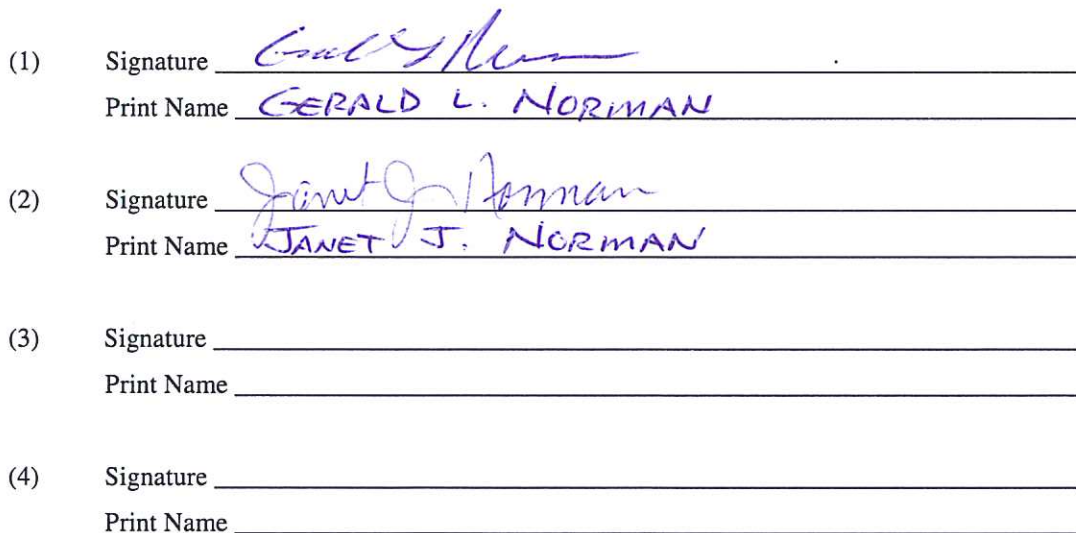 (1) Signature
Print Name GERALD L. NORMAN
(2) Signature Janet J. Norman
Print Name JANET J. NORMAN
(3) Signature
Print Name
(4) Signature
Print Name